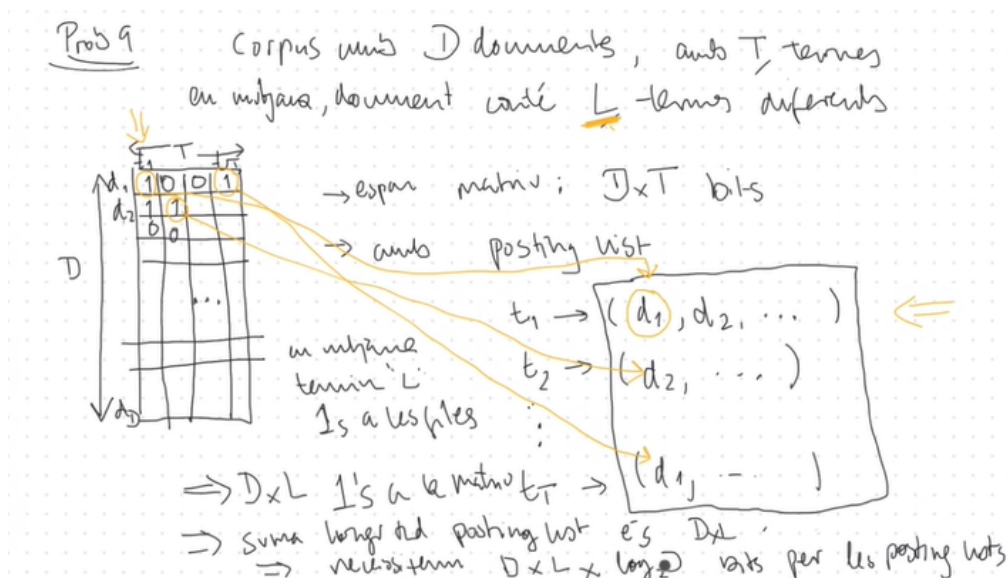 Prob 9 Corpus amb D documents, amb T termes
en mitjana, document conté L termes diferents
T
t1 tT
d1 1 0 0 1
→ espai matriu: D×T bits
d2 1 1
0 0
→ amb posting list
D
...
t1 → (d1, d2, ... )
en mitjana
tenim L
t2 → (d2, ... )
1s a les files
⋮
dD
⇒ D×L 1's a la matriu
tT → (d1, - )
⇒ suma longitud posting list és D×L
⇒ necessitem D×L× log2 D bits per les posting lists